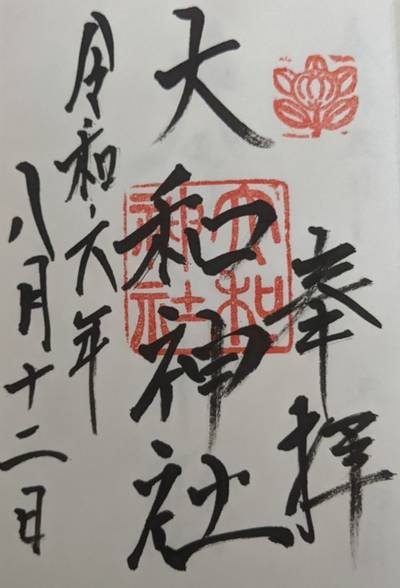 奉拝
大和神社
大和神社
令和六年
八月十二日